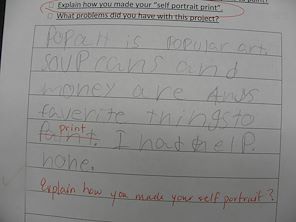 Explain how you made your "self portrait print"
What problems did you have with this project?
PoPart is Popular art.
Soup cans and
money are Andys
faverite things to
print
print. I had help.
none.
Explain how you made your self portrait?